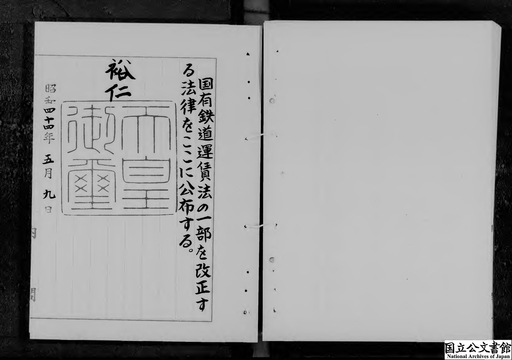 国有鉄道運賃法の一部を改正す
る法律をここに公布する。
裕仁
天皇
御璽
昭和四十四年 五月 九日
国立公文書館
National Archives of Japan